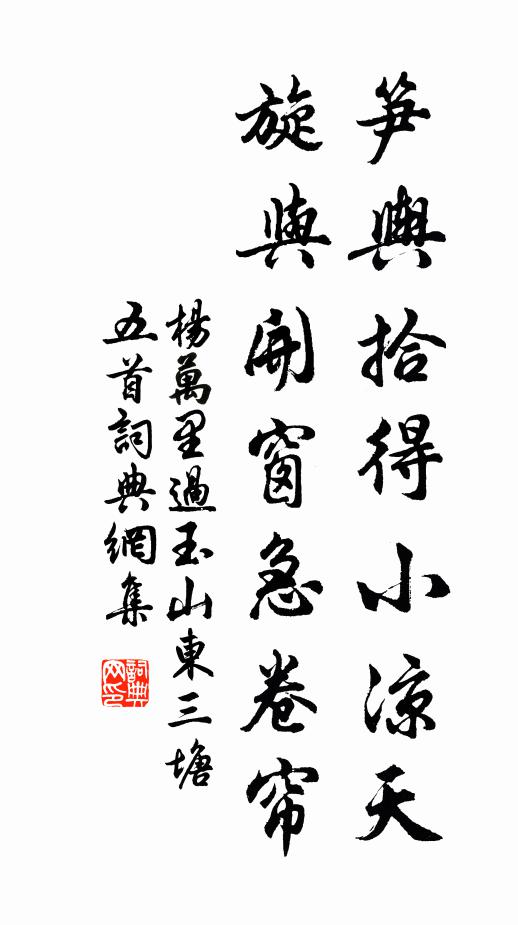 笋輿拾得小涼天
旋與開窗急卷帘
楊萬里過玉山東三塘
五首詞典網集
詞典
网印